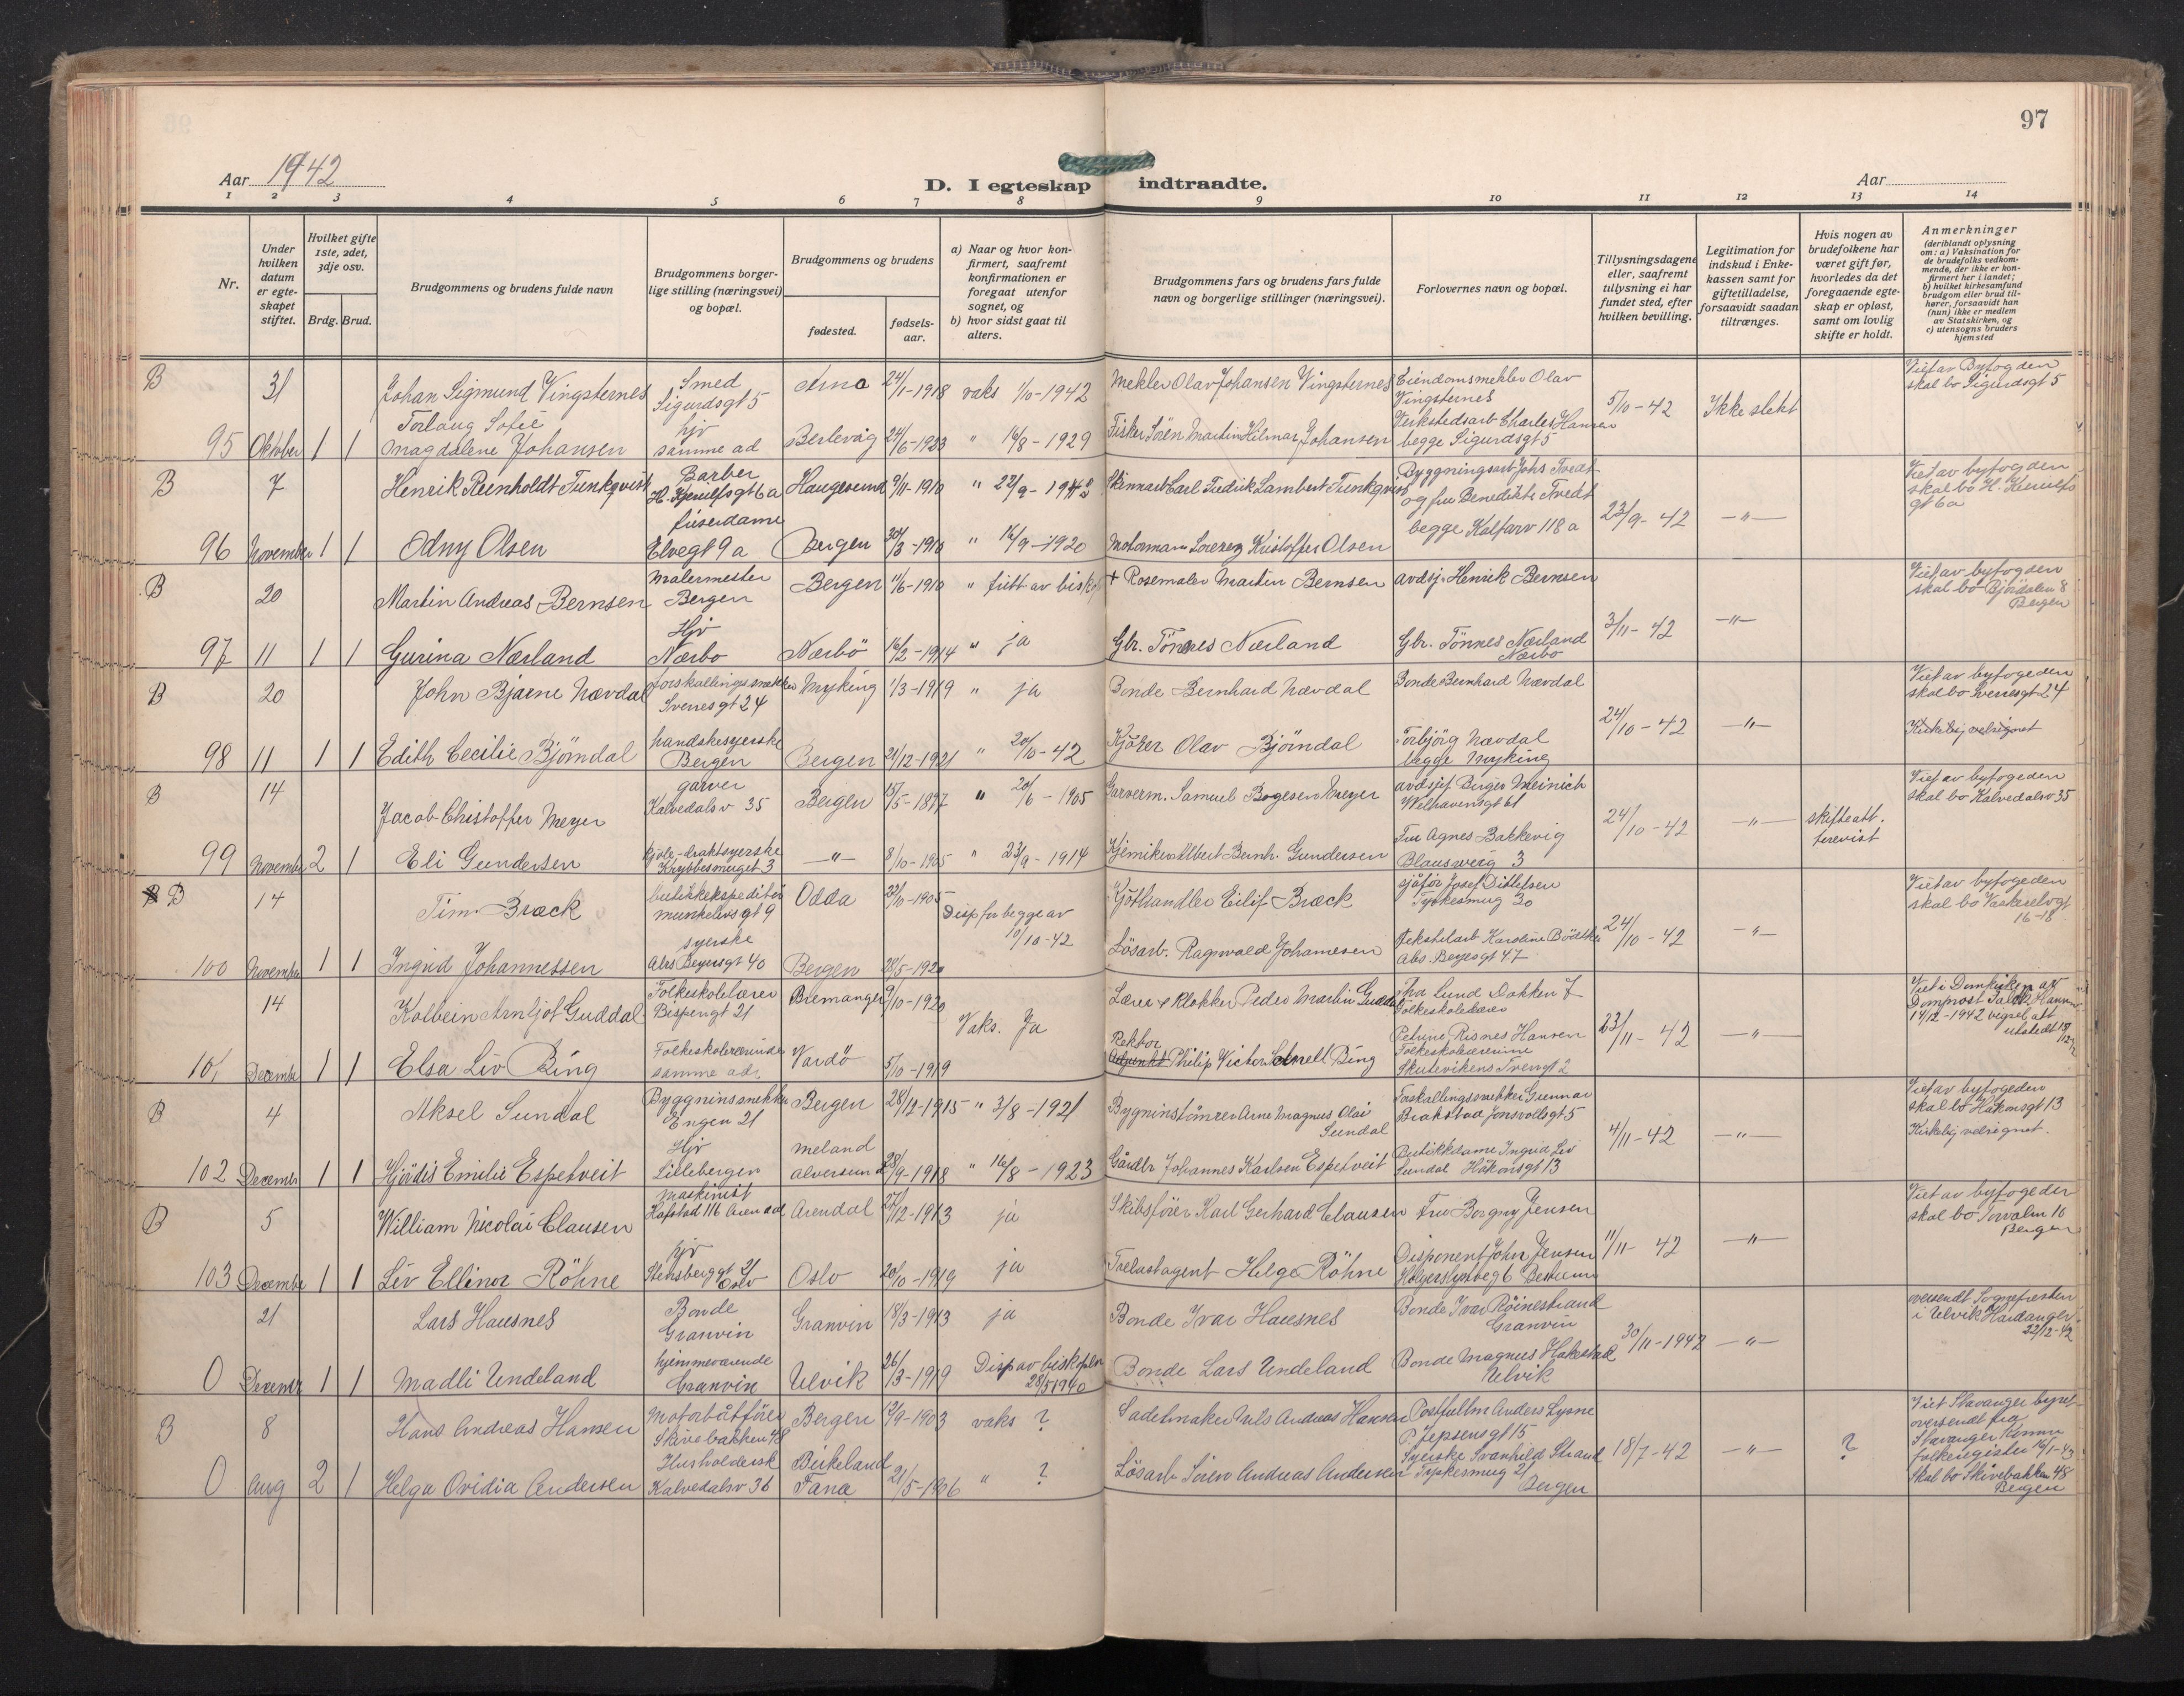 97
Aar 1942
D. I egteskap indtraadte.
Aar
1 2 3 4 5 6 7 8 9 10 11 12 13 14
Nr.
Under hvilken datum er egteskapet stiftet.
Hvilket gifte 1ste, 2det, 3dje osv.
Brdg. Brud.
Brudgommens og brudens fulde navn
Brudgommens borgerlige stilling (næringsvei) og bopæl.
Brudgommens og brudens
fødested.
fødselsaar.
a) Naar og hvor konfirmert, saafremt konfirmationen er foregaat utenfor sognet, og
b) hvor sidst gaat til alters.
Brudgommens fars og brudens fars fulde navn og borgerlige stillinger (næringsvei).
Forlovernes navn og bopæl.
Tillysningsdagene eller, saafremt tillysning ei har fundet sted, efter hvilken bevilling.
Legitimation for indskud i Enkekassen samt for giftetilladelse, forsaavidt saadan tiltrænges.
Hvis nogen av brudefolkene har været gift før, hvorledes da det foregaaende egteskap er opløst, samt om lovlig skifte er holdt.
Anmerkninger
(deriblandt oplysning om: a) Vaksination for de brudefolks vedkommende, der ikke er konfirmert her i landet; b) hvilket kirkesamfund brudgom eller brud tilhører, forsaavidt han (hun) ikke er medlem av Statskirken, og c) utensogns bruders hjemsted
B 31 Johan Sigmund Vingsternes Smed Sigurdsgt 5 Arna 24/1-1918 vaks 1/10-1942 Mekler Olav Johansen Vingsternes Eiendomsmekler Olav Vingsternes 5/10-42 Ikke slekt Viet av Byfogden skal bo Sigurdsgt 5
95 Oktober 1 1 Torlaug Sofie Magdalene Johansen hjv samme ad Berlevåg 24/6-1923 " 16/8-1929 Fisker Sören Martin Hilmar Johansen Verkstedsarb Charles Hansen begge Sigurdsgt 5
B 7 Henrik Reinholdt Funkqvist Barber H. Kjerulfsgt 6a Haugesund 9/11-1910 " Skinnarb Carl Fredrik Lambert Funkqvist Byggningsarb Johs Tvedt og fru Benedikte Tvedt begge Kalfarv 118 a 23/9-42 -"- Viet av byfogden skal bo H. Kjerulfsgt 6a
96 November 1 1 Odny Olsen friserdame Elvegt 9a Bergen 30/3-1910 " 16/9-1920 Motormann Lorenz Kristoffer Olsen
B 20 Martin Andreas Bernsen Malermester Bergen Bergen 11/6-1910 " fritt av biskop † Rosemaler Martin Bernsen avdsj. Henrik Bernsen 3/11-42 -"- Viet av byfogden skal bo Bjørdalen 8 Bergen
97 11 1 1 Gurina Nærland Hjv Nærbo Nærbö 16/2-1914 " ja Gbr. Tönnes Nærland Gbr. Tönnes Nærland Nærbo
B 20 John Bjarne Nævdal forskallingssnekker Sverresgt 24 Myking 1/3-1919 " ja Bonde Bernhard Nævdal Bonde Bernhard Nævdal 24/10-42 -"- Viet av byfogeden skal bo Sverresgt 24
98 11 1 1 Edith Cecilie Bjørndal handskesyerske Bergen Bergen 21/12-1921 " 20/10-42 Kjører Olav Bjørndal Torbjörg Nævdal begge Myking Kirkelig velsignet
B 14 Jacob Christoffer Meyer garver Kalvedalsv 35 Bergen 15/5-1897 " 20/6-1905 Garverm. Samuel Bøgesen Meyer avdsjef Birger Meinich Welhavensgt 61 24/10-42 -"- skifteatt. forevist Viet av byfogeden skal bo Kalvedalsv 35
99 November 2 1 Eli Gundersen kjole-draktsyerske Krybbesmuget 3 -"- 8/10-1905 " 23/9-1914 Kjemiker Albert Bernh. Gundersen Fru Agnes Bakkevig Blausverg 3
B 14 Tim Bræck butikkekspeditör Munkelivsgt 9 Odda Disp for begge av 10/10-42 Kjöthandler Eilif Bræck sjåfør Josef Ditlefsen Tyskesmug 30 24/10-42 -"- Viet av byfogeden skal bo Vaskerelvgt 16-18
100 November 1 1 Ingrid Johannessen syerske Abs Beyersgt 40 Bergen 28/5-1920 Lösarb. Ragnvald Johannesen Tekstilarb Karoline Bödtker Abs. Beyersgt 47
14 Kolbein Arnljot Guddal Folkeskolelærer Bispengt 21 Bremanger 9/10-1920 Vaks. Ja Lærer & klokker Peder Martin Guddal Lund Dokken 7 Folkeskolelærer 23/11-42 -"- Viet i Domkirken av Domprost 14/12-1942 vigsel att utstedt
101 December 1 1 Elsa Liv Bing Folkeskolelærerinde samme adr. Vardö 5/10-1919 Rektor Philip Victor Schnell Bing Petrine Risnes Hansen Folkeskolelærerinne Skutevikens Tverrgt 2
B 4 Aksel Sundal Byggninssnekker Engen 21 Bergen 28/12-1915 " 3/8-1921 Bygninstömrer Arne Magnus Olai Sundal Forskallingssnekker Gunnar Brakstad Jonsvollsgt 5 4/11-42 -"- Viet av byfogeden skal bo Håkonsgt 13 Kirkelig velsignet.
102 Decembr 1 1 Hjördis Emilie Espetveit Hjv Lillebergen Meland Alversund 28/9-1918 " 16/8-1923 Gårdbr Johannes Karlsen Espetveit Butikkdame Ingrid Liv Sundal Håkonsgt 13
B 5 William Nicolai Clausen Maskinist Hafstad 116 Arendal Arendal 27/12-1913 ja Skibsfører Karl Gerhard Clausen Fru Borgny Jensen 11/11-42 -"- Viet av byfogeden skal bo Torvalm 16 Bergen
103 December 1 1 Liv Ellinor Röhne hjv Stensberggt 21 Oslo Oslo 20/10-1919 ja Trelastagent Helge Röhne Disponent John Jensen Holgerslystvegt 6 Bestum
21 Lars Hausnes Bonde Granvin Granvin 18/3-1913 ja Bonde Ivar Hausnes Bonde Ivar Röinestrand Granvin 30/11-1942 -"- oversendt Sognepresten i Ulvik Hardanger 22/12-42
0 Decembr 1 1 Madli Undeland hjemmeværende Granvin Ulvik 26/3-1919 Disp av biskopen 28/5 1940 Bonde Lars Undeland Bonde Magnus Hakestad Ulvik
B 8 Hans Andreas Hansen Motorbåtförer Skivebakken 48 Bergen 12/9-1903 vaks ? Sadelmaker Nils Andreas Hansen Postfullm Anders Lysne P. Jepsensgt 15 18/7-42 -"- ? Viet Stavanger byret oversendt fra Stavanger Komm folkeregister 16/1-43
0 Aug 2 1 Helga Ovidia Andersen Husholdersk Kalvedalsv 36 Birkeland Fana 21/5-1906 " ? Lösarb Sören Andreas Andersen Syerske Svanhild Strand Tyskesmug 21 Bergen Skal bo Skivebakken 48 Bergen